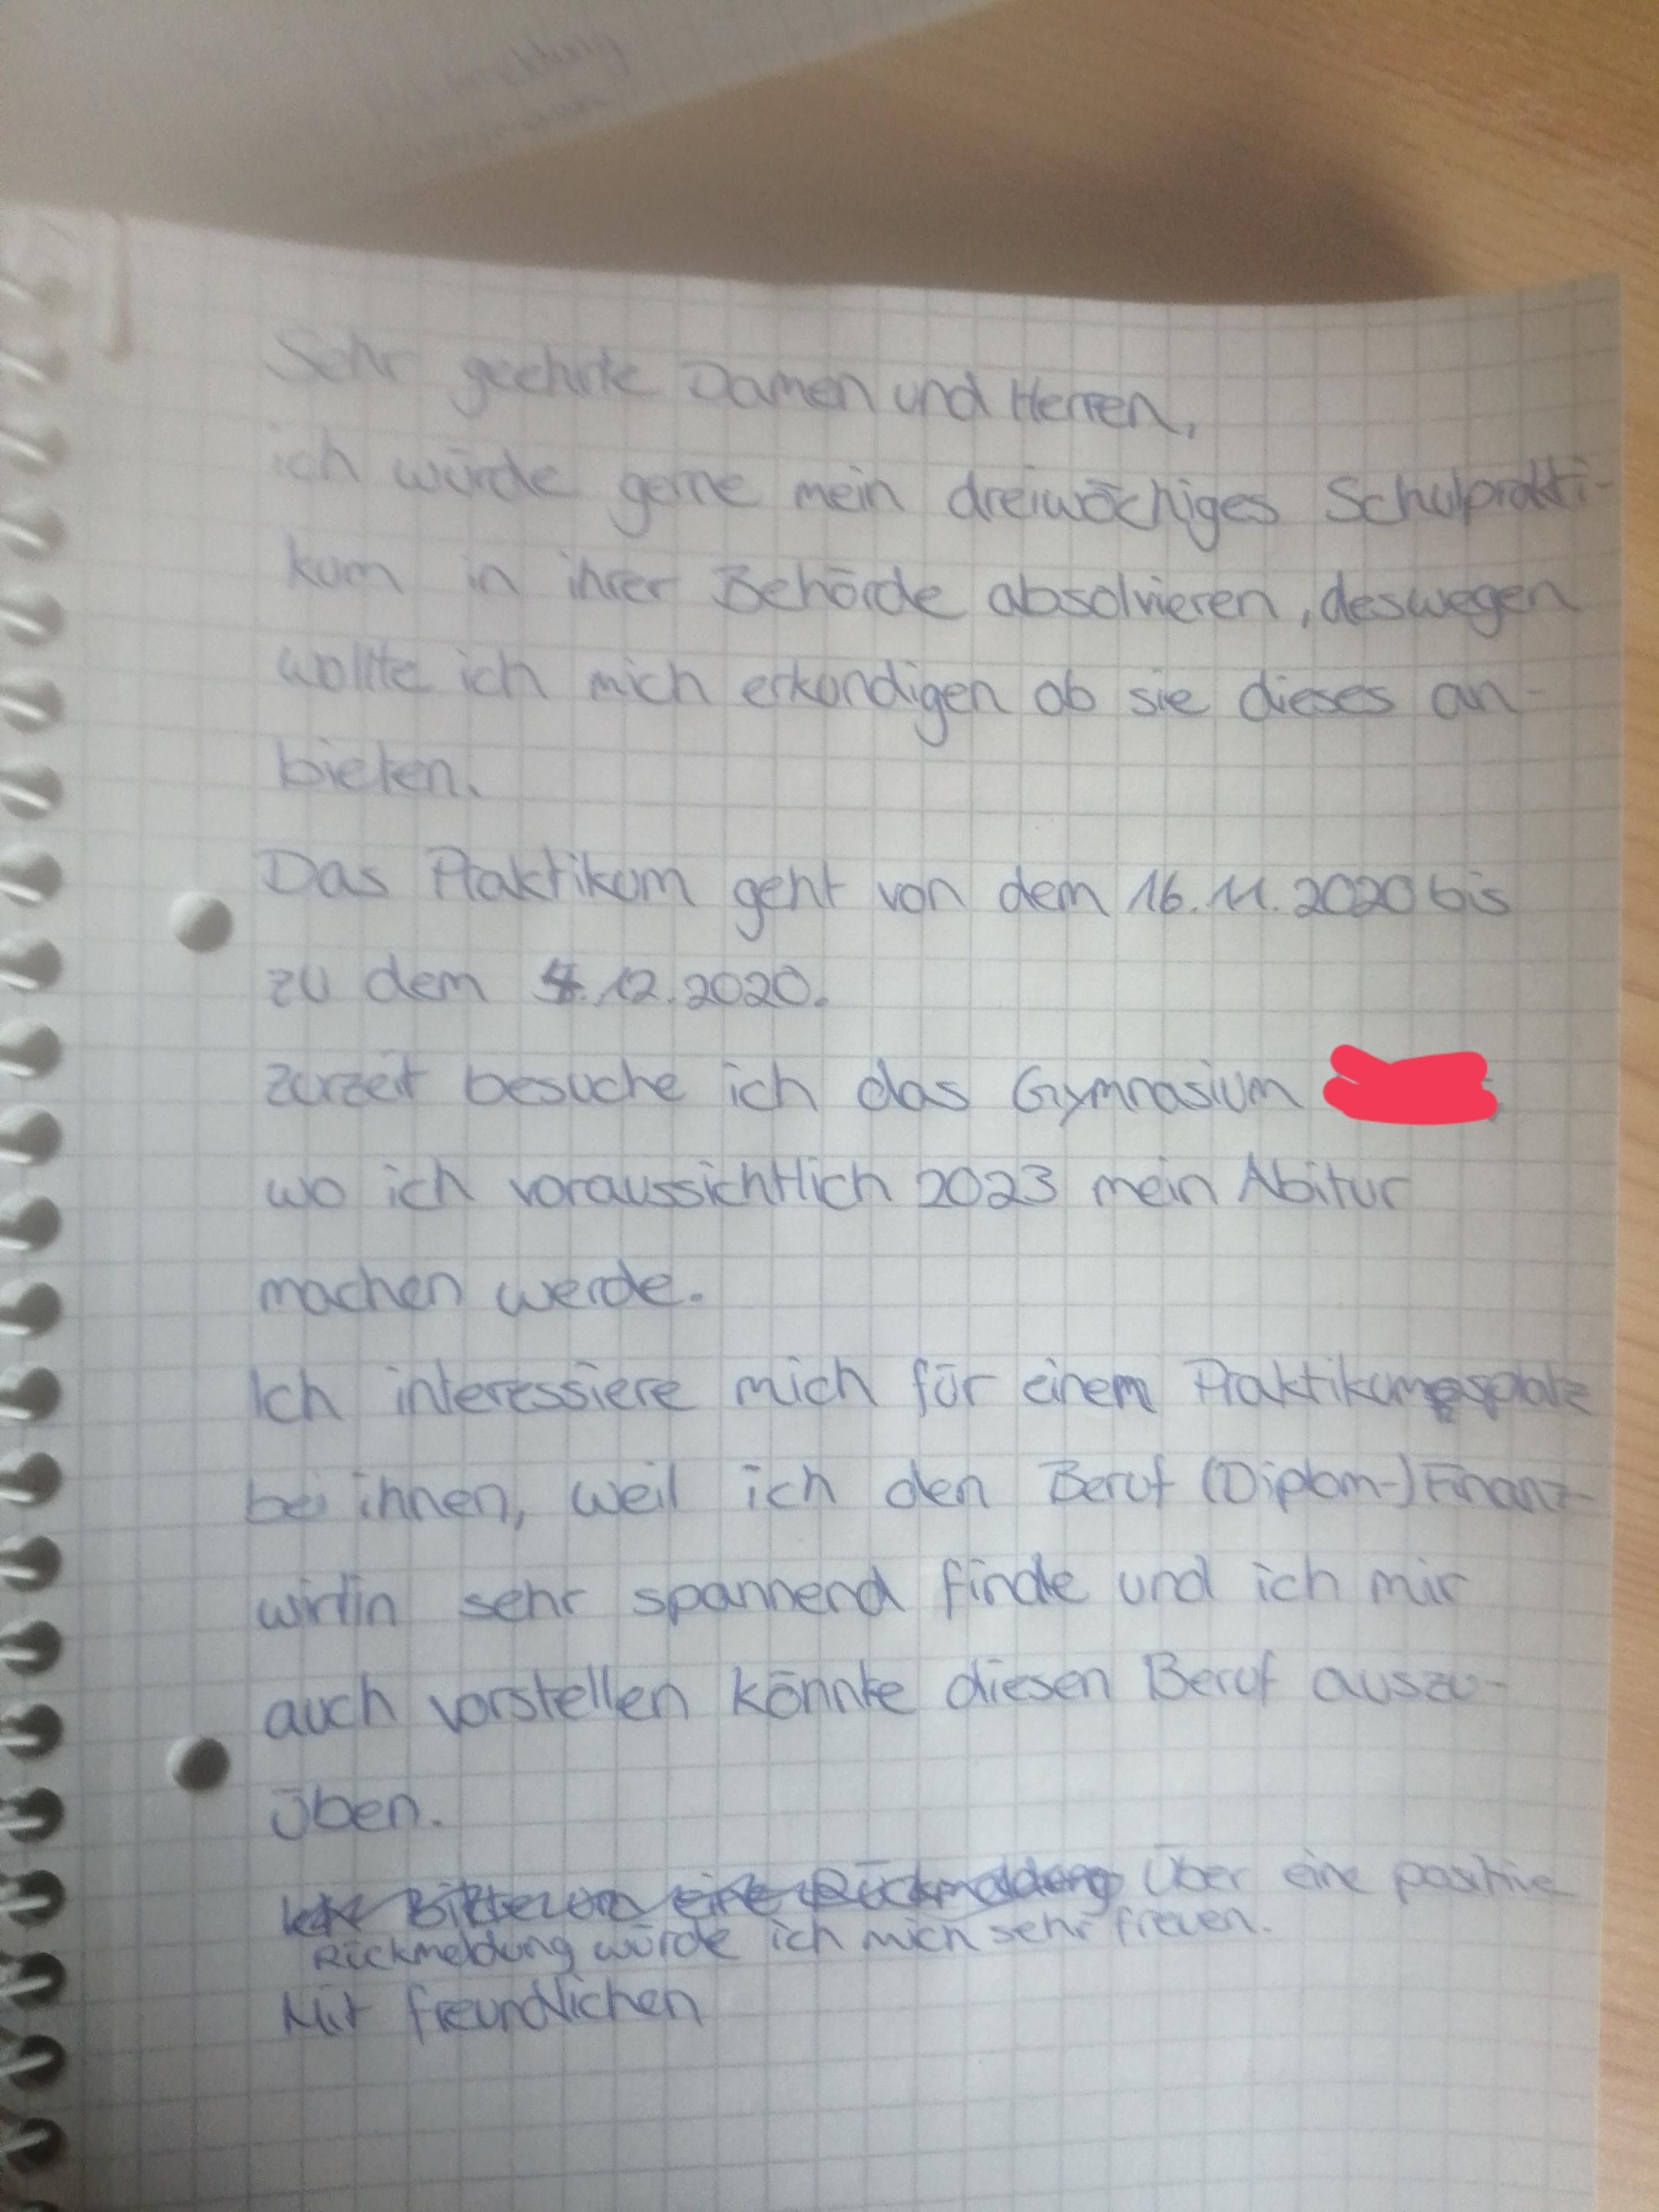 Sehr geehrte Damen und Herren,
ich würde gerne mein dreiwöchiges Schulprakti-
kum in ihrer Behörde absolvieren, deswegen
wollte ich mich erkundigen ob sie dieses an-
bieten.
Das Praktikum geht von dem 16.11.2020 bis
zu dem .12.2020.
zurzeit besuche ich das Gymnasium
wo ich voraussichtlich 2023 mein Abitur
machen werde.
Ich interessiere mich für einem Praktikumsplatz
bei ihnen, weil ich den Beruf (Diplom-) Finanz-
wirtin sehr spannend finde und ich mir
auch vorstellen könnte diesen Beruf auszu-
üben.
Bitte um eine Rückmeldung Über eine positive
Rückmeldung würde ich mich sehr freuen.
Mit freundlichen